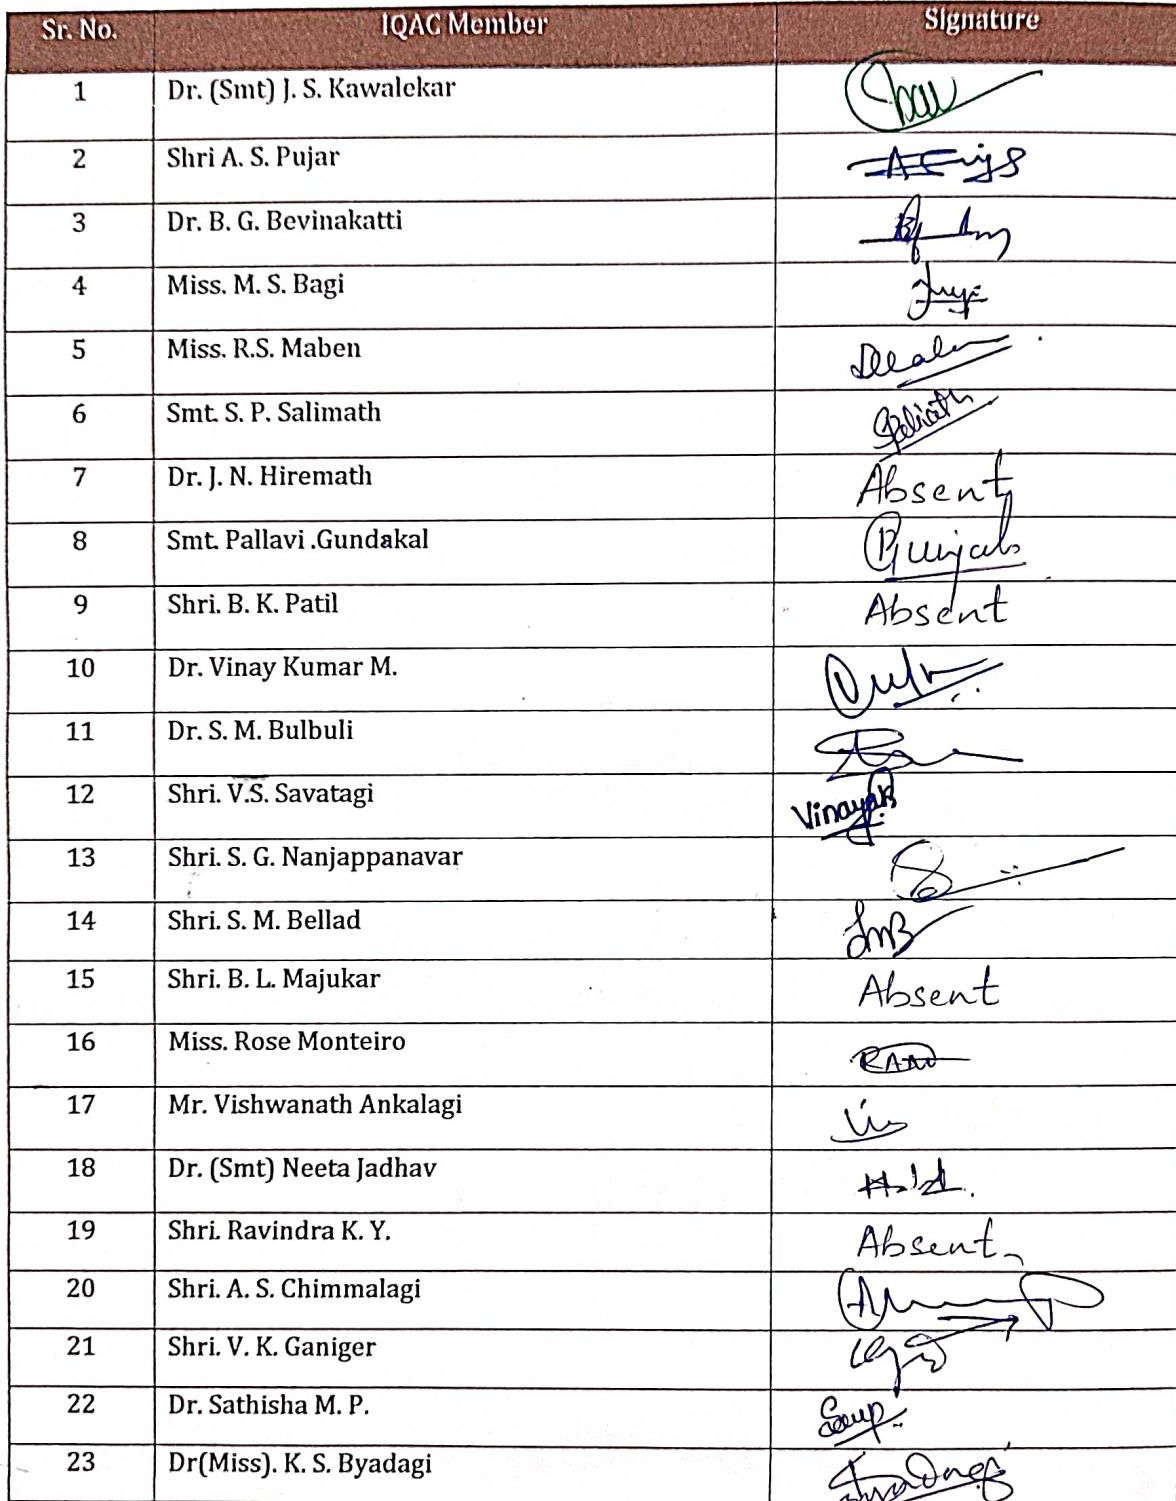 Sr. No. IQAC Member Signature
1 Dr. (Smt) J. S. Kawalekar
2 Shri A. S. Pujar
3 Dr. B. G. Bevinakatti
4 Miss. M. S. Bagi
5 Miss. R.S. Maben
6 Smt. S. P. Salimath
7 Dr. J. N. Hiremath Absent
8 Smt. Pallavi .Gundakal
9 Shri. B. K. Patil Absent
10 Dr. Vinay Kumar M.
11 Dr. S. M. Bulbuli
12 Shri. V.S. Savatagi Vinayak
13 Shri. S. G. Nanjappanavar
14 Shri. S. M. Bellad SMB
15 Shri. B. L. Majukar Absent
16 Miss. Rose Monteiro
17 Mr. Vishwanath Ankalagi
18 Dr. (Smt) Neeta Jadhav
19 Shri. Ravindra K. Y. Absent
20 Shri. A. S. Chimmalagi
21 Shri. V. K. Ganiger
22 Dr. Sathisha M. P.
23 Dr(Miss). K. S. Byadagi